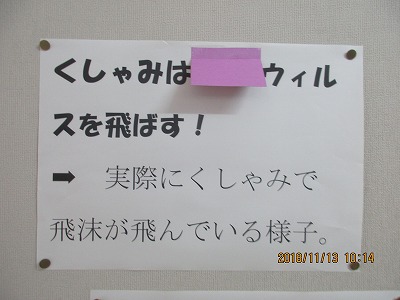 くしゃみは ウィル
スを飛ばす！
➡ 実際にくしゃみで
飛沫が飛んでいる様子。
2018/11/13 10:14